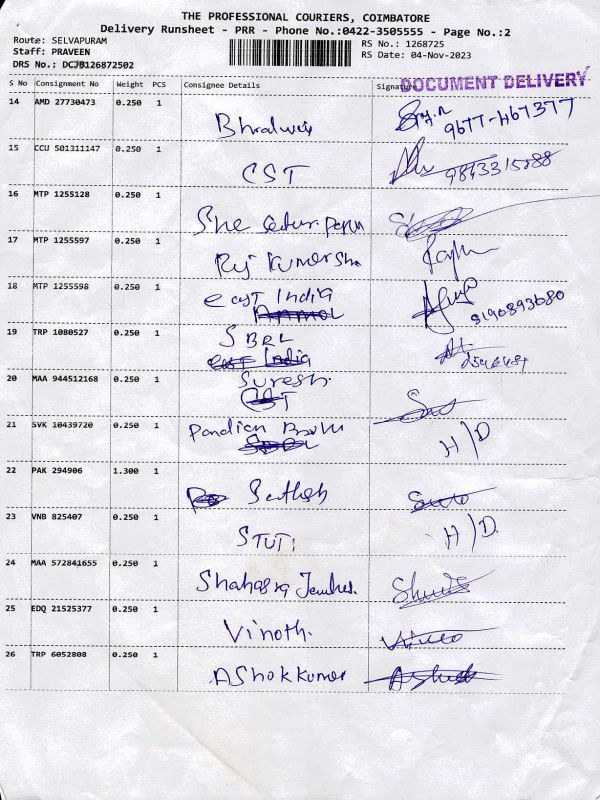 THE PROFESSIONAL COURIERS, COIMBATORE
Delivery Runsheet - PRR - Phone No.:0422-3505555 - Page No.:2
Route: SELVAPURAM
Staff: PRAVEEN
DRS No.: DCJB126872502
RS No.: 1268725
RS Date: 04-Nov-2023
DOCUMENT DELIVERY
S No Consignment No Weight PCS Consignee Details Signature
14 AMD 27730473 0.250 1
9677-467377
15 CCU 501311147 0.250 1
CST
16 MTP 1255128 0.250 1
17 MTP 1255597 0.250 1
18 MTP 1255598 0.250 1
east India
8190893680
19 TRP 1080527 0.250 1
east India
20 MAA 944512168 0.250 1
Suresh.
CST
21 SVK 10439720 0.250 1
Pandian
H/D
22 PAK 294906 1.300 1
Sathish
23 VNB 825407 0.250 1
STUTI
H/D
24 MAA 572841655 0.250 1
25 EDQ 21525377 0.250 1
Vinoth.
26 TRP 6052808 0.250 1
AShokkumar